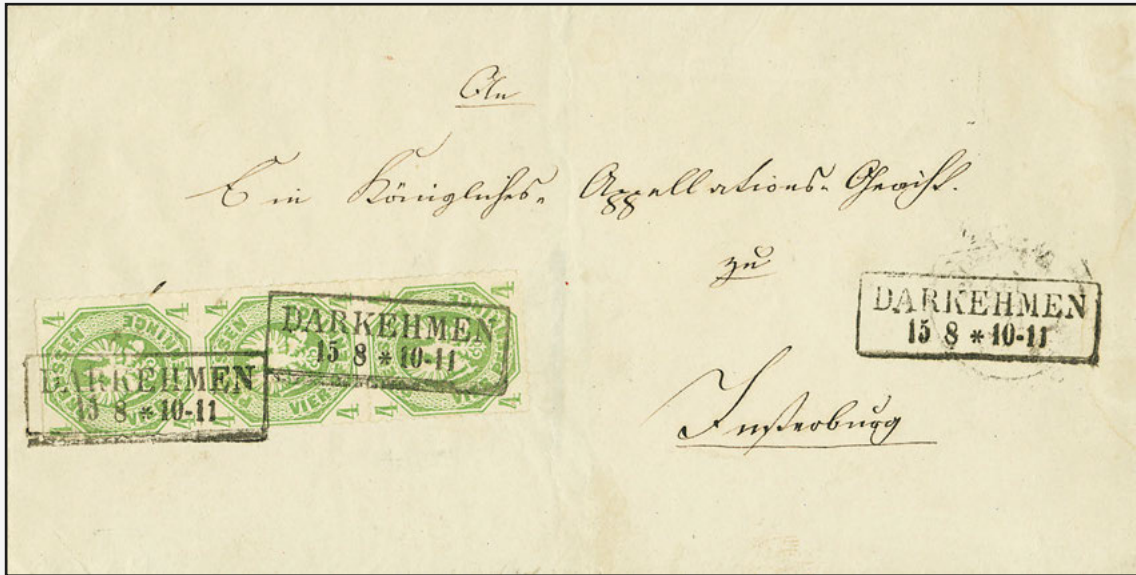 An
Ein Königliches Appellations-Gericht.
zu
Insterburg
DARKEHMEN
15 8 * 10-11
DARKEHMEN
15 8 * 10-11
DARKEHMEN
15 8 * 10-11
4 4 4 4 4
PREUSSEN
VIER
4 4